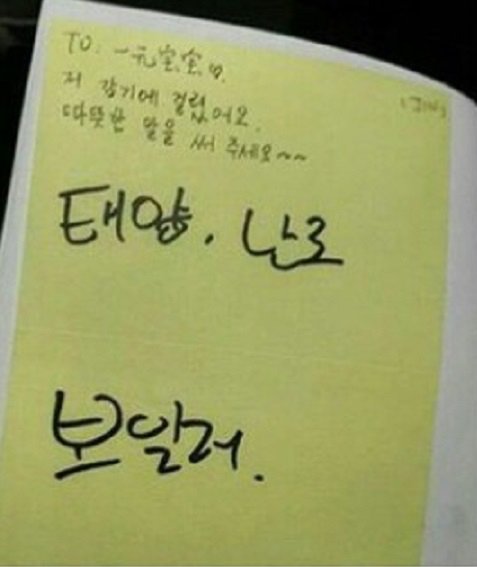 TO. 一元宝宝♡.
저 감기에 걸렸어요.
따뜻한 말을 써 주세요~~
태양, 난로
보일러.